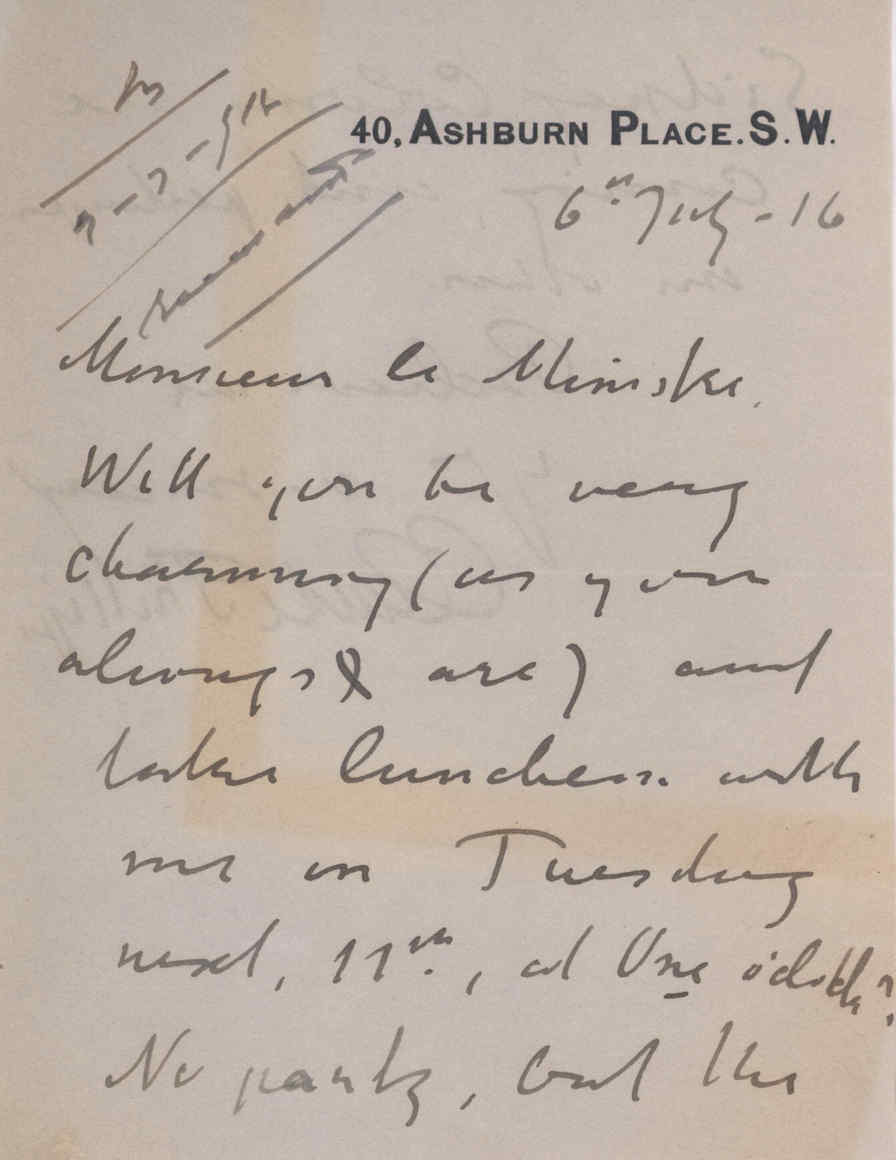 40, ASHBURN PLACE. S. W.
6th July - 16
Monsieur le Ministre.
Will you be very
charming (as you
always are) and
take luncheon with
me on Tuesday
next, 11th, at One o'clock?
No party, but the